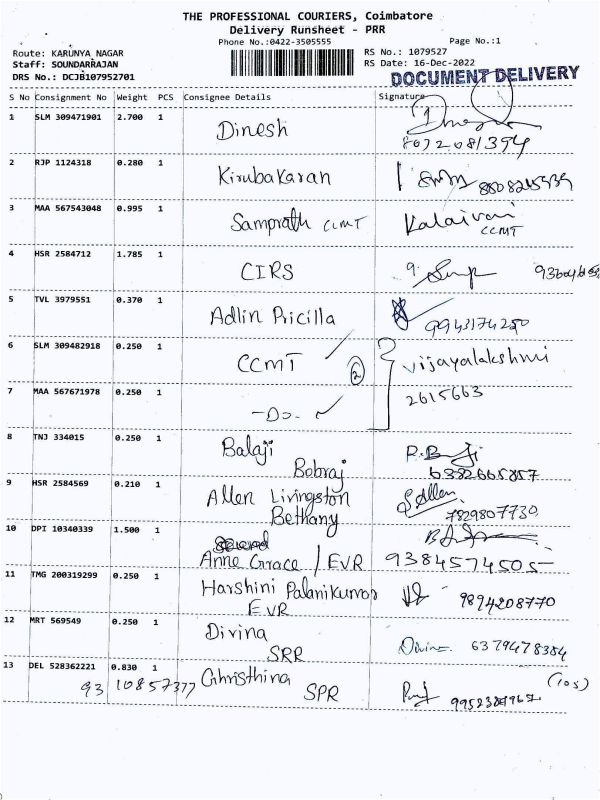 THE PROFESSIONAL COURIERS, Coimbatore
Delivery Runsheet - PRR
Phone No.:0422-3505555
Page No.:1
Route: KARUNYA NAGAR
Staff: SOUNDARRAJAN
DRS No.: DCJB107952701
RS No.: 1079527
RS Date: 16-Dec-2022
DOCUMENT DELIVERY
S No Consignment No Weight PCS Consignee Details Signature
1 SLM 309471901 2.700 1 Dinesh
8072081394
2 RJP 1124318 0.280 1 Kirubakaran
3 MAA 567543048 0.995 1 Samprath CCMT Kalaivani
CCMT
4 HSR 2584712 1.785 1 CIRS
5 TVL 3979551 0.370 1 Adlin Pricilla
9943174250
6 SLM 309482918 0.250 1 CCMT 2 Vijayalakshmi
7 MAA 567671978 0.250 1 -Do- 2615663
8 TNJ 334015 0.250 1 Balaji
Bobraj 6382665857
9 HSR 2584569 0.210 1 Allen Livingston
Bethany 7829807730
10 DPI 10340339 1.500 1
Anne Grace / EVR 9384574505
11 TMG 200319299 0.250 1 Harshini Palanikumar
EVR 9894208770
12 MRT 569549 0.250 1 Divina
SRR Divina 6379478384
13 DEL 528362221 0.830 1 Christhina
93 10857377 SPR (105)